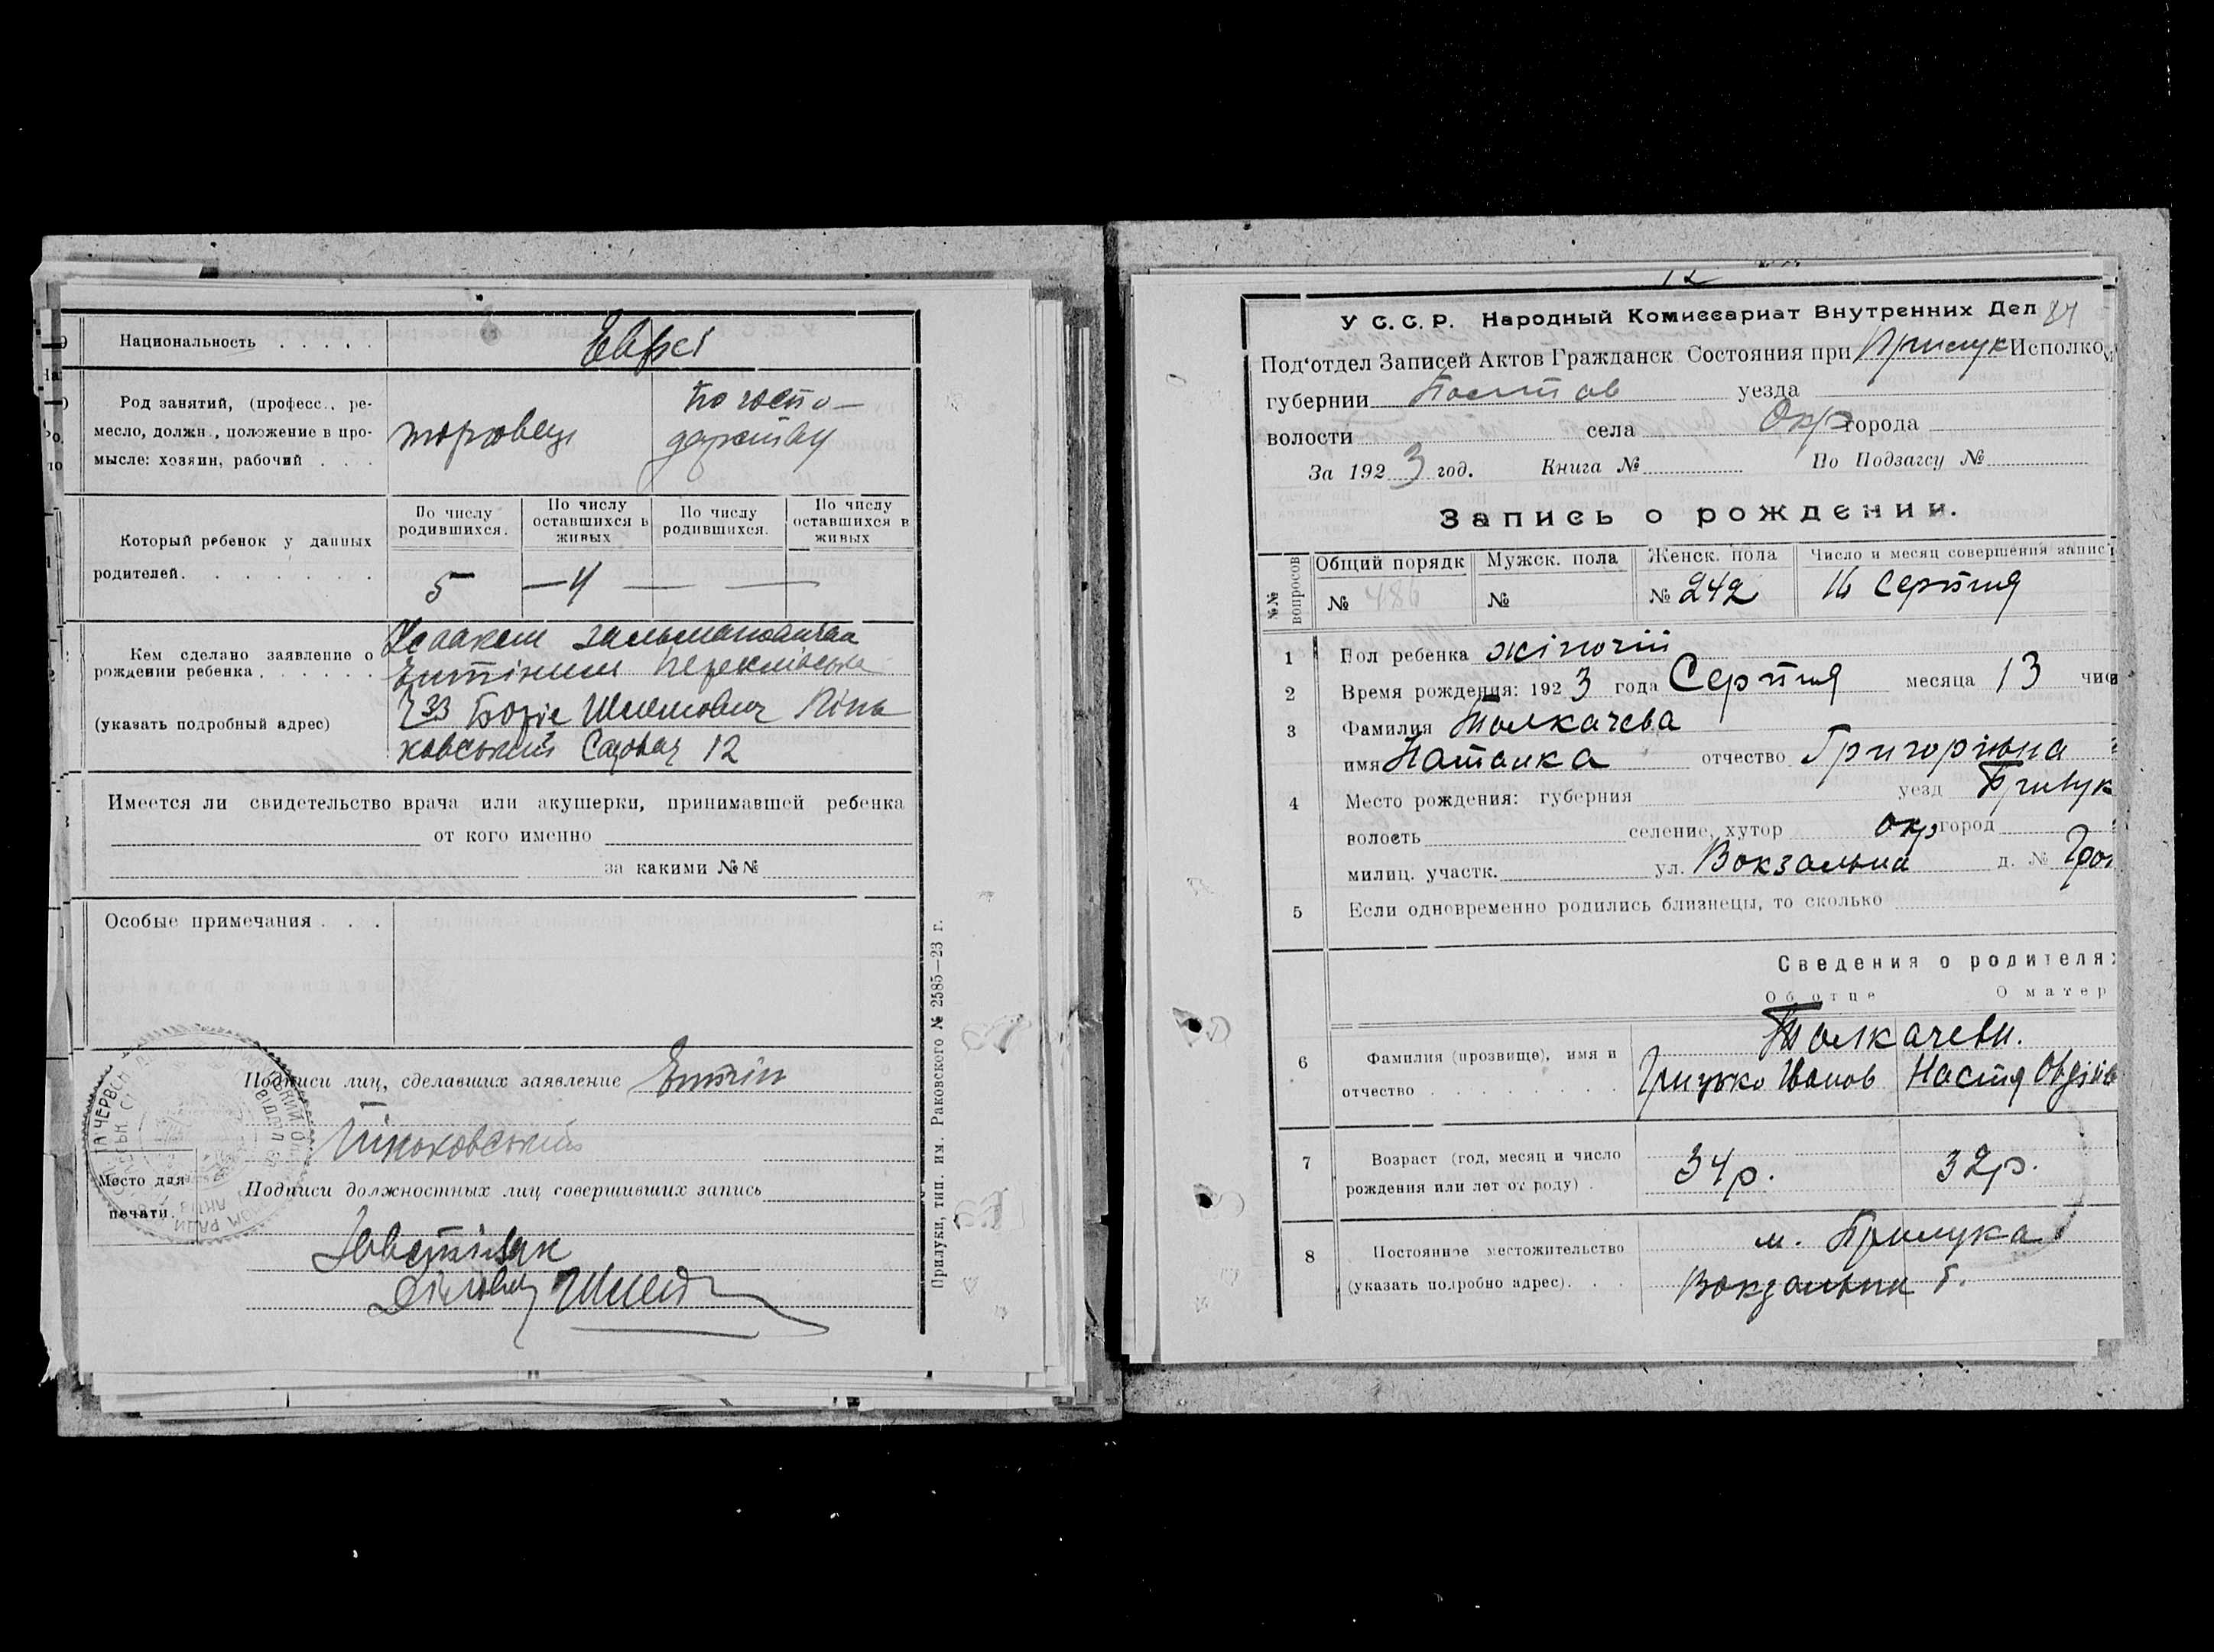 Национальность . . . . .
Евреї
Род занятий, (професс., ре-
месло, должн., положение в про-
мысле: хозяин, рабочий . . .
торговець
по госпо-
дарству
Который ребенок у данных
родителей. . . . . . . .
По числу
родившихся.
По числу
оставшихся в
живых
По числу
родившихся.
По числу
оставшихся в
живых
5 — 4 — —
Кем сделано заявление о
рождении ребенка . . . . . .
(указать подробный адрес)
Ісааком Зальмановичем
Ентіним
33 Борис Шлемович Піню
ковський Садова 12
Имеется ли свидетельство врача или акушерки, принимавшей ребенка
от кого именно
за какими №№
Особые примечания . . .
Подписи лиц, сделавших заявление Ентін
Піньковський
Подписи должностных лиц совершивших запись
Место для
печати.
Прилуки, тип. им. Раковского № 2585—23 г.
У С. С. Р. Народный Комиссариат Внутренних Дел 84
Под'отдел Записей Актов Гражданск Состояния при Прилук Исполко
губернии Полтав уезда
волости села Окр города
За 1923 год. Книга № По Подзагсу №
Запись о рождении.
№№ вопросов
Общий порядк Мужск. пола Женск. пола Число и месяц совершения запис
№ 486 № № 242 16 Серпня
1 Пол ребенка жіночій
2 Время рождения: 1923 года Серпня месяца 13 чис
3 Фамилия Толкачева
имя Наталка отчество Григорівна
4 Место рождения: губерния уезд Прилук
волость селение, хутор Окр город
милиц. участк. ул. Вокзальна д. №
5 Если одновременно родились близнецы, то сколько
Сведения о родителях
Об отце О матер
6 Фамилия (прозвище), имя и
отчество . . . . . . . .
Толкачеви.
Грицько Іванов Настя
7 Возраст (год, месяц и число
рождения или лет от роду) .
34р. 32р.
8 Постоянное местожительство
(указать подробно адрес). . .
м. Прилука
Вокзальна